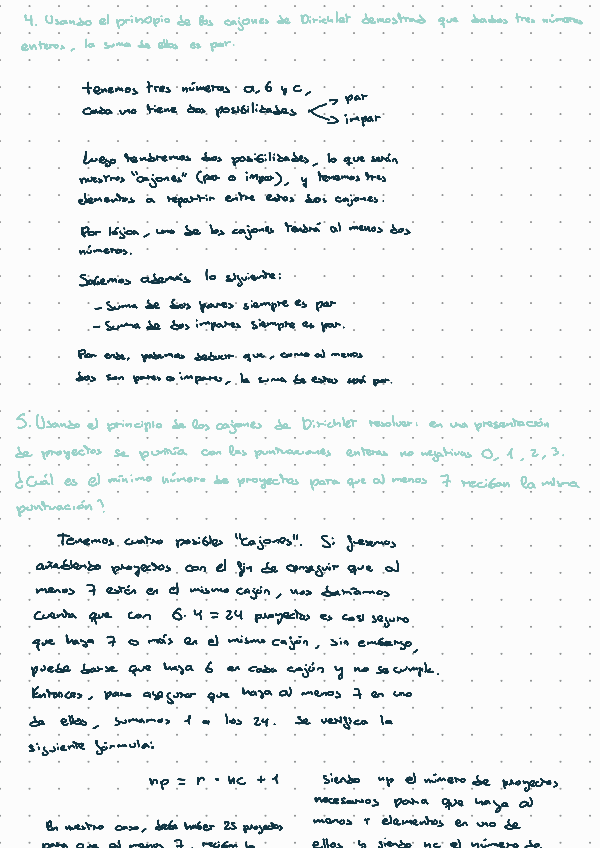 4. Usando el principio de los cajones de Dirichlet demostrad que dados tres números
enteros, la suma de ellos es par.
tenemos tres números a, b y c,
cada uno tiene dos posibilidades → par
→ impar
Luego tendremos dos posibilidades, lo que serán
nuestros "cajones" (par o impar), y tenemos tres
elementos a repartir entre estos dos cajones.
Por lógica, uno de los cajones tendrá al menos dos
números.
Sabemos además lo siguiente:
- Suma de dos pares siempre es par
- Suma de dos impares siempre es par.
Por ende, podemos deducir que, como al menos
dos son pares o impares, la suma de estos será par.
5. Usando el principio de los cajones de Dirichlet resolver: en una presentación
de proyectos se puntúa con las puntuaciones enteras no negativas 0, 1, 2, 3.
¿Cuál es el mínimo número de proyectos para que al menos 7 reciban la misma
puntuación?
Tenemos cuatro posibles "cajones". Si fuesemos
añadiendo proyectos con el fin de conseguir que al
menos 7 estén en el mismo cajón, nos daríamos
cuenta que con 6·4 = 24 proyectos es casi seguro
que haya 7 o más en el mismo cajón, sin embargo,
puede darse que haya 6 en cada cajón y no se cumple.
Entonces, para asegurar que haya al menos 7 en uno
de ellos, sumamos 1 a los 24. Se verifica la
siguiente fórmula:
np = r · nc + 1
siendo np el número de proyectos
necesarios para que haya al
menos r elementos en uno de
ellos y siendo nc el número de
En nuestro caso, debe haber 25 proyectos
para que al menos 7 reciban la